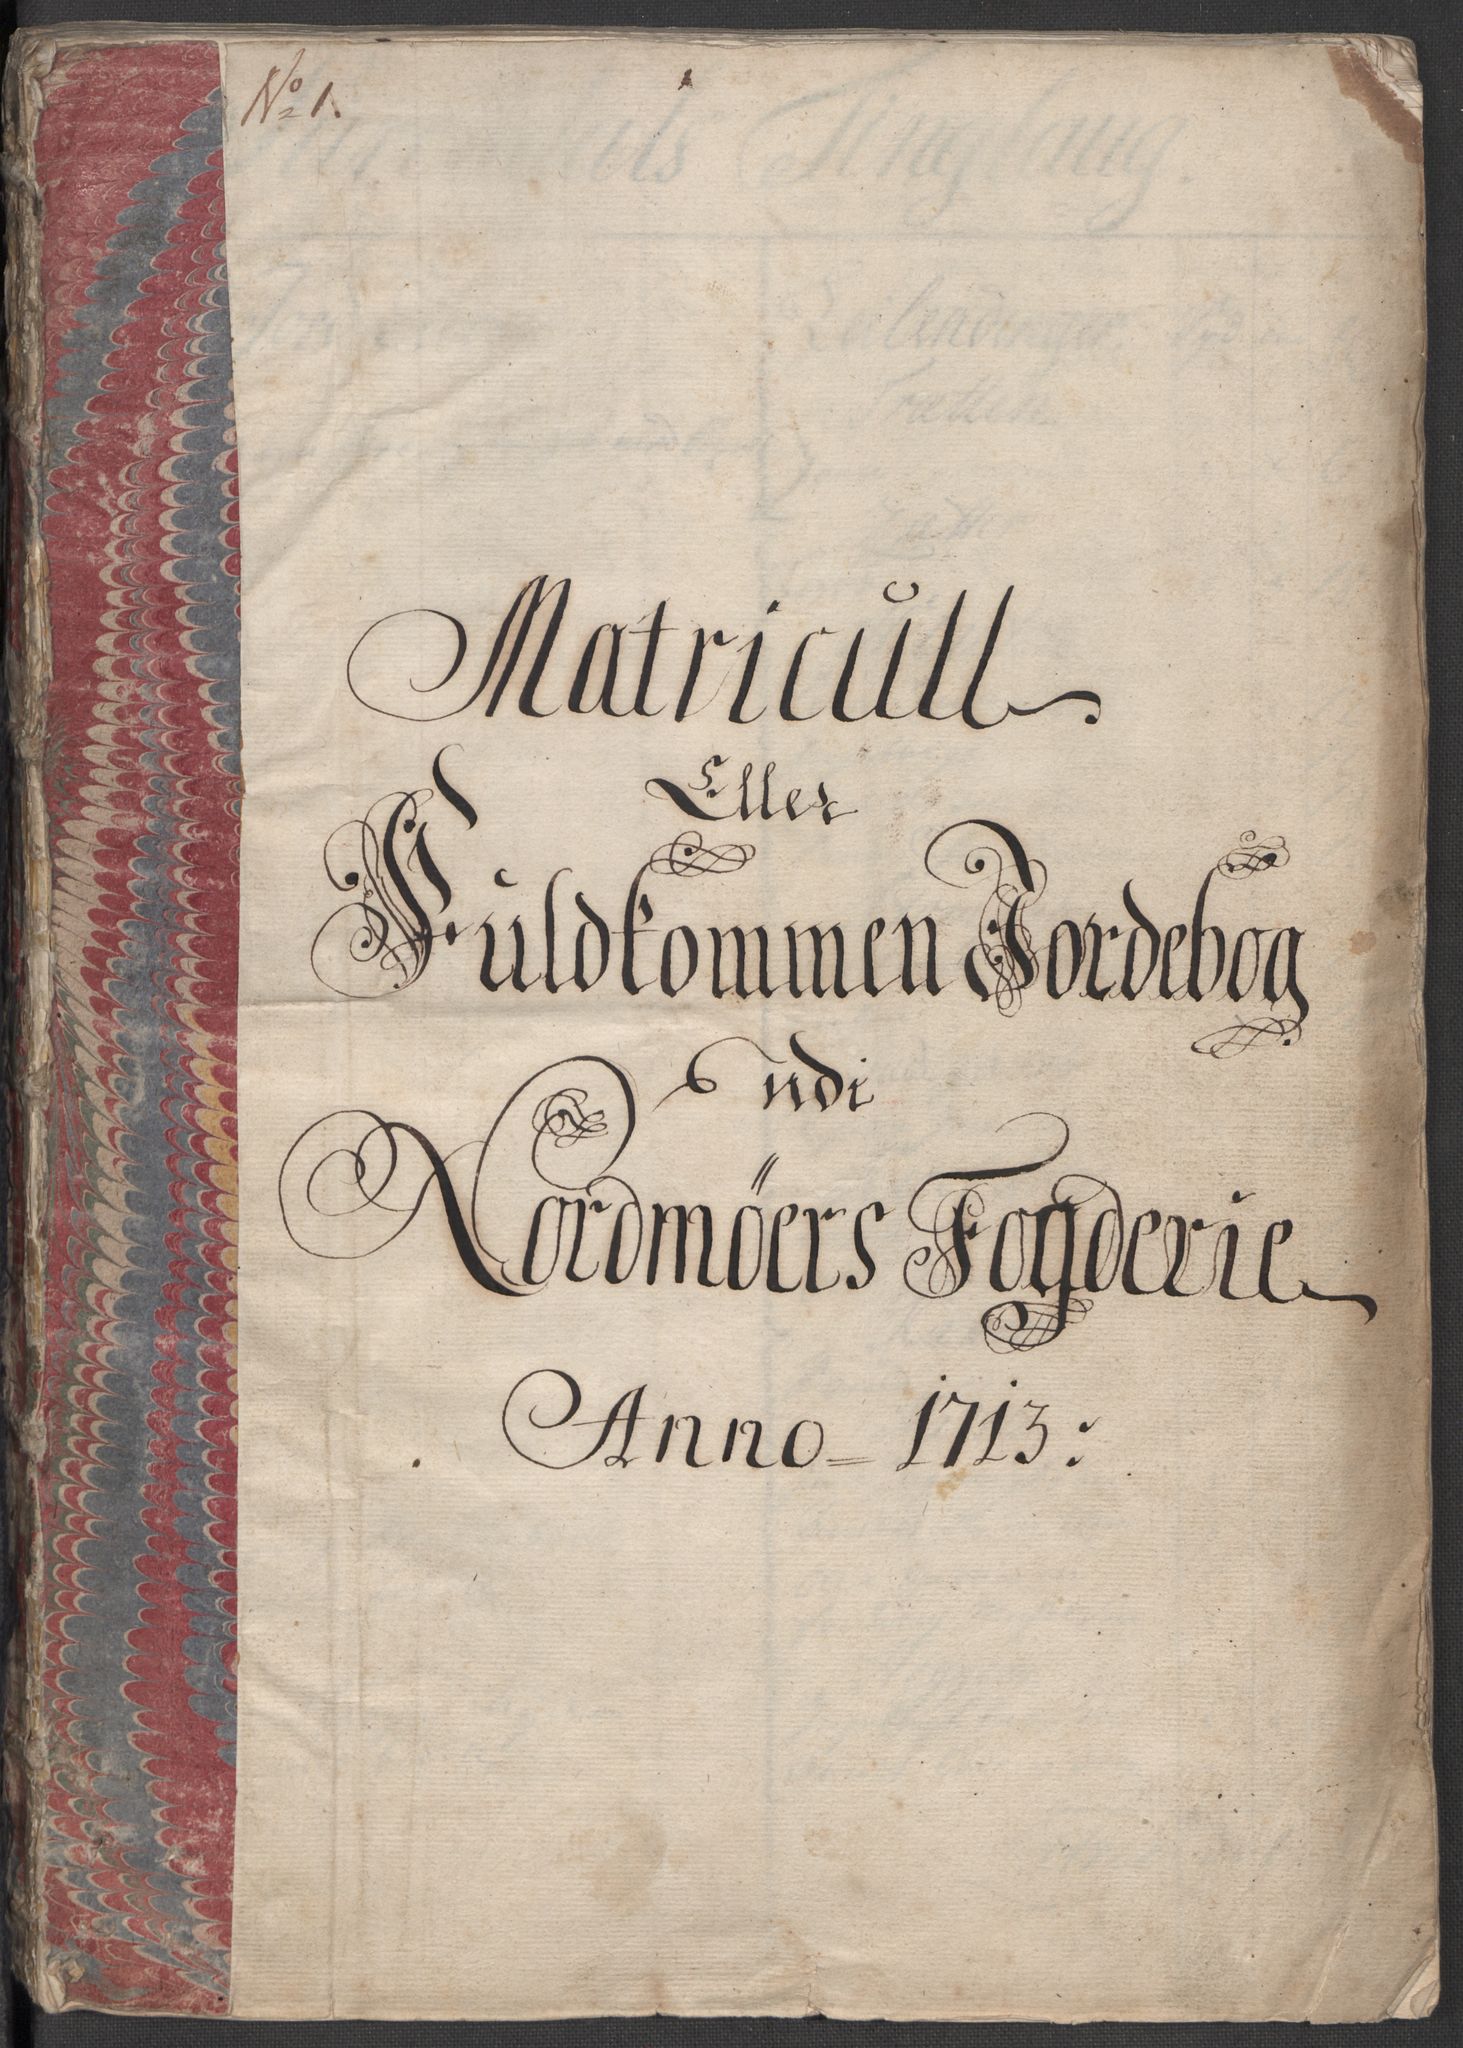 No 1.
Matricŭll
Eller
Fŭldkommen Jordebog
udi
Nordmöers Fogderie
Anno 1713: